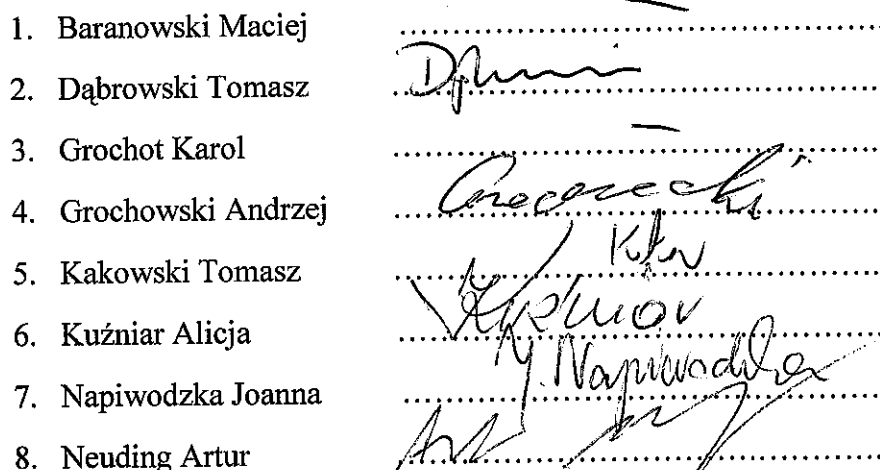 1. Baranowski Maciej ........................................ —
2. Dąbrowski Tomasz ........................................
3. Grochot Karol ........................................ —
4. Grochowski Andrzej ........................................
5. Kakowski Tomasz ........................................
6. Kuźniar Alicja ........................................ Kuźniar
7. Napiwodzka Joanna ........................................ J. Napiwodzka
8. Neuding Artur ........................................